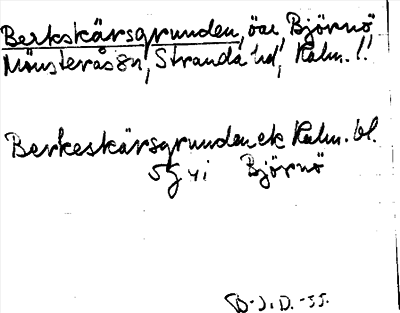 Berkskärsgrunden, öar, Björnö
Mönsterås sn, Stranda hd, Kalm. l.
Berkeskärsgrunden ek Kalm. bl.
5G 4i Björnö